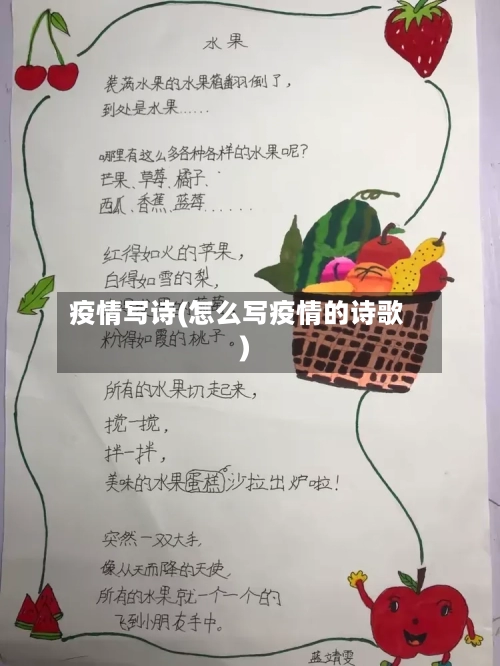 水果
装满水果的水果箱翻倒了，
到处是水果……
哪里有这么多各种各样的水果呢？
芒果、草莓、橘子、
西瓜、香蕉、蓝莓……
红得如火的苹果，
白得如雪的梨，
疫情写诗(怎么写疫情的诗歌
)
粉得如霞的桃子。
所有的水果切起来，
搅一搅，
拌一拌，
美味的水果蛋糕沙拉出炉啦！
突然一双大手，
像从天而降的天使，
所有的水果就一个一个的
飞到小朋友手中。
蓝婧雯